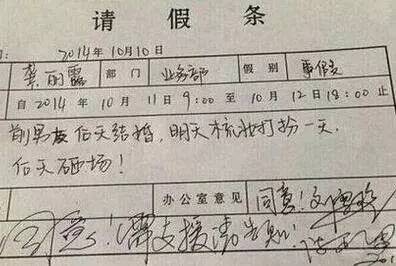 请假条
2014年10月10日
龚丽露 部门 业务部 假别 事假
自2014年10月11日9:00至10月12日18:00止
前男友后天结婚，明天梳妆打扮一天.
后天砸场！
办公室意见 同意！
同意！需支援请告知！